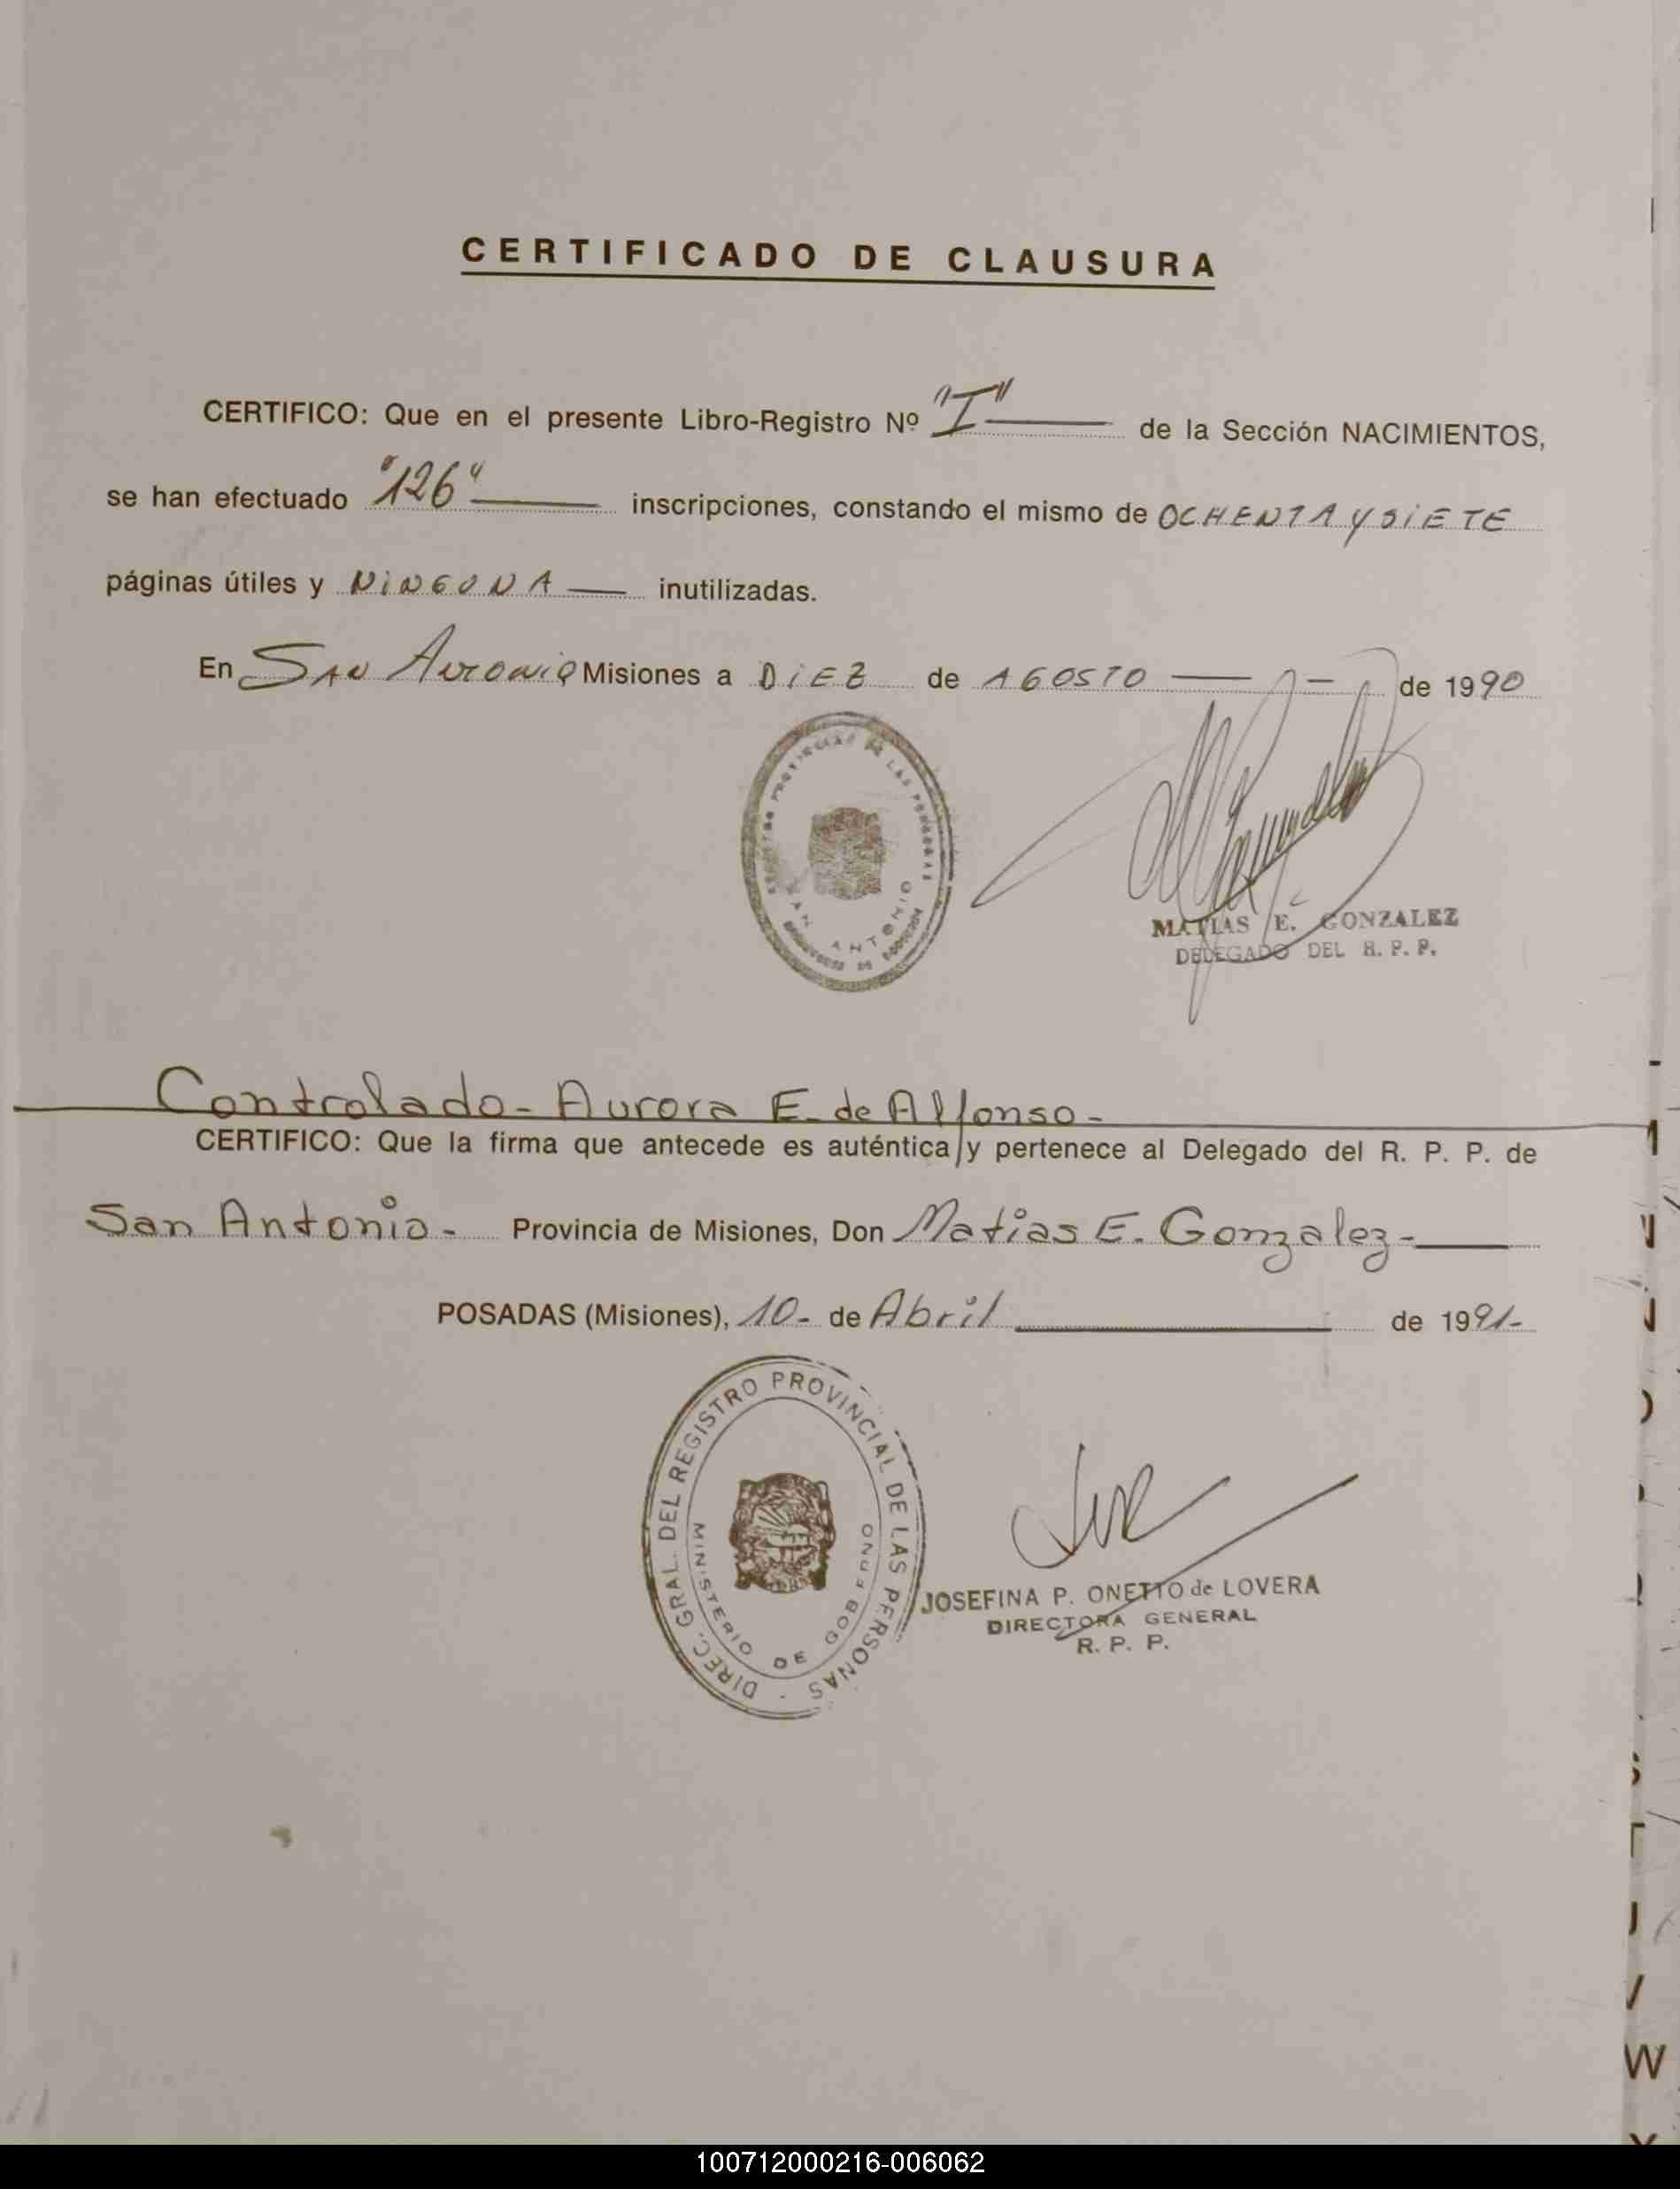 CERTIFICADO DE CLAUSURA
CERTIFICO: Que en el presente Libro-Registro Nº "I" de la Sección NACIMIENTOS,
se han efectuado "126" inscripciones, constando el mismo de OCHENTA Y SIETE
páginas útiles y NINGUNA inutilizadas.
En SAN ANTONIO Misiones a DIEZ de AGOSTO — — de 1990
PROVINCIAL DE LAS PERSONAS
SAN ANTONIO
MATIAS E. GONZALEZ
DELEGADO DEL R. P. P.
Controlado - Aurora E. de Alfonso -
CERTIFICO: Que la firma que antecede es auténtica y pertenece al Delegado del R. P. P. de
San Antonio - Provincia de Misiones, Don Matias E. Gonzalez -
POSADAS (Misiones), 10 - de Abril de 1991 -
DIREC. GRAL. DEL REGISTRO PROVINCIAL DE LAS PERSONAS -
MINISTERIO DE GOBIERNO
JOSEFINA P. ONETTO de LOVERA
DIRECTORA GENERAL
R. P. P.
W
100712000216-006062